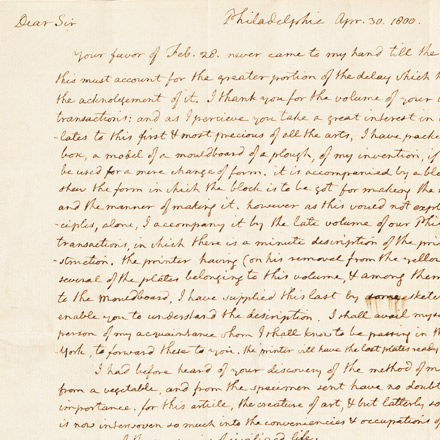 Dear Sir Philadelphia Apr. 30. 1800.
Your favor of Feb. 28. never came to my hand till the
this must account for the greater portion of the delay which h
the acknolegement of it. I thank you for the volume of your
transactions: and as I percieve you take a great interest in
-lates to this first & most precious of all the arts, I have packe
box, a model of a mouldboard of a plough, of my invention, if
be used for a mere change of form. it is accompanied by a blo
shew the form in which the block is to be got for making the
and the manner of making it. however as this would not exp
ciples, alone, I accompany it by the late volume of our Phi
transactions, in which there is a minute description of the pri
-struction. the printer having (on his removal from the yellow
several of the plates belonging to this volume, & among them
to the mouldboard, I have supplied this last by some sketc
enable you to understand the description. I shall avail myse
person of my acquaintance whom I shall know to be passing in th
York, to forward these to you. the printer will have the lost plates ready
I had before heard of your discovery of the method of m
from a vegetable, and from the specimen sent have no doubt
importance. for this article, the creature of art, & but latterly so
is now interwoven so much into the conveniencies & occupations o